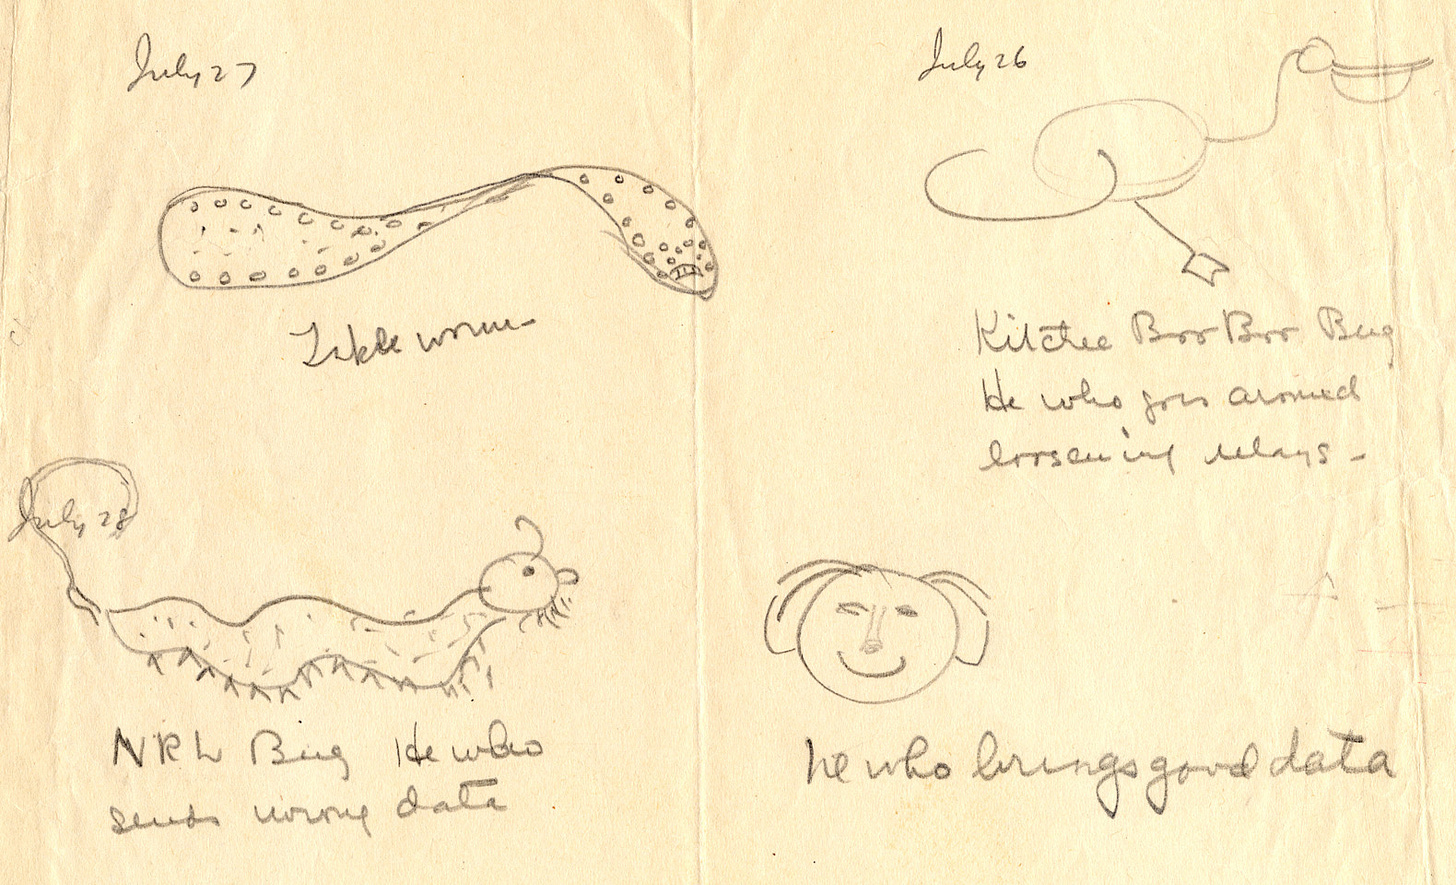 July 27
Table worm
July 28
NRL Bug He who
sends wrong data
July 26
Kitchie Boo Boo Bug
He who goes around
loosening relays -
he who brings good data